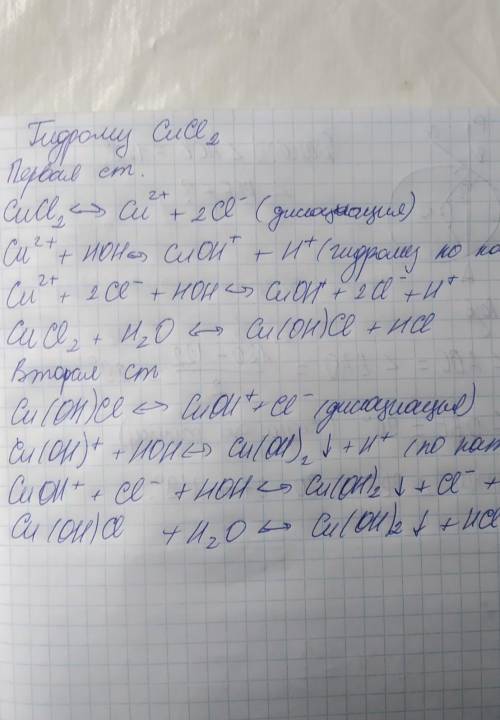 Гидролиз CuCl2
Первая ст.
CuCl2 ↔ Cu2+ + 2Cl- (дисоциация)
Cu2+ + HOH ↔ CuOH+ + H+ (гидролиз по ка
Cu2+ + 2Cl- + HOH ↔ CuOH+ + 2Cl- + H+
CuCl2 + H2O ↔ Cu(OH)Cl + HCl
Вторая ст
Cu(OH)Cl ↔ CuOH+ + Cl- (дисоциация)
Cu(OH)+ + HOH ↔ Cu(OH)2 ↓ + H+ (по кат
CuOH+ + Cl- + HOH ↔ Cu(OH)2 ↓ + Cl- +
Cu(OH)Cl + H2O ↔ Cu(OH)2 ↓ + HCl